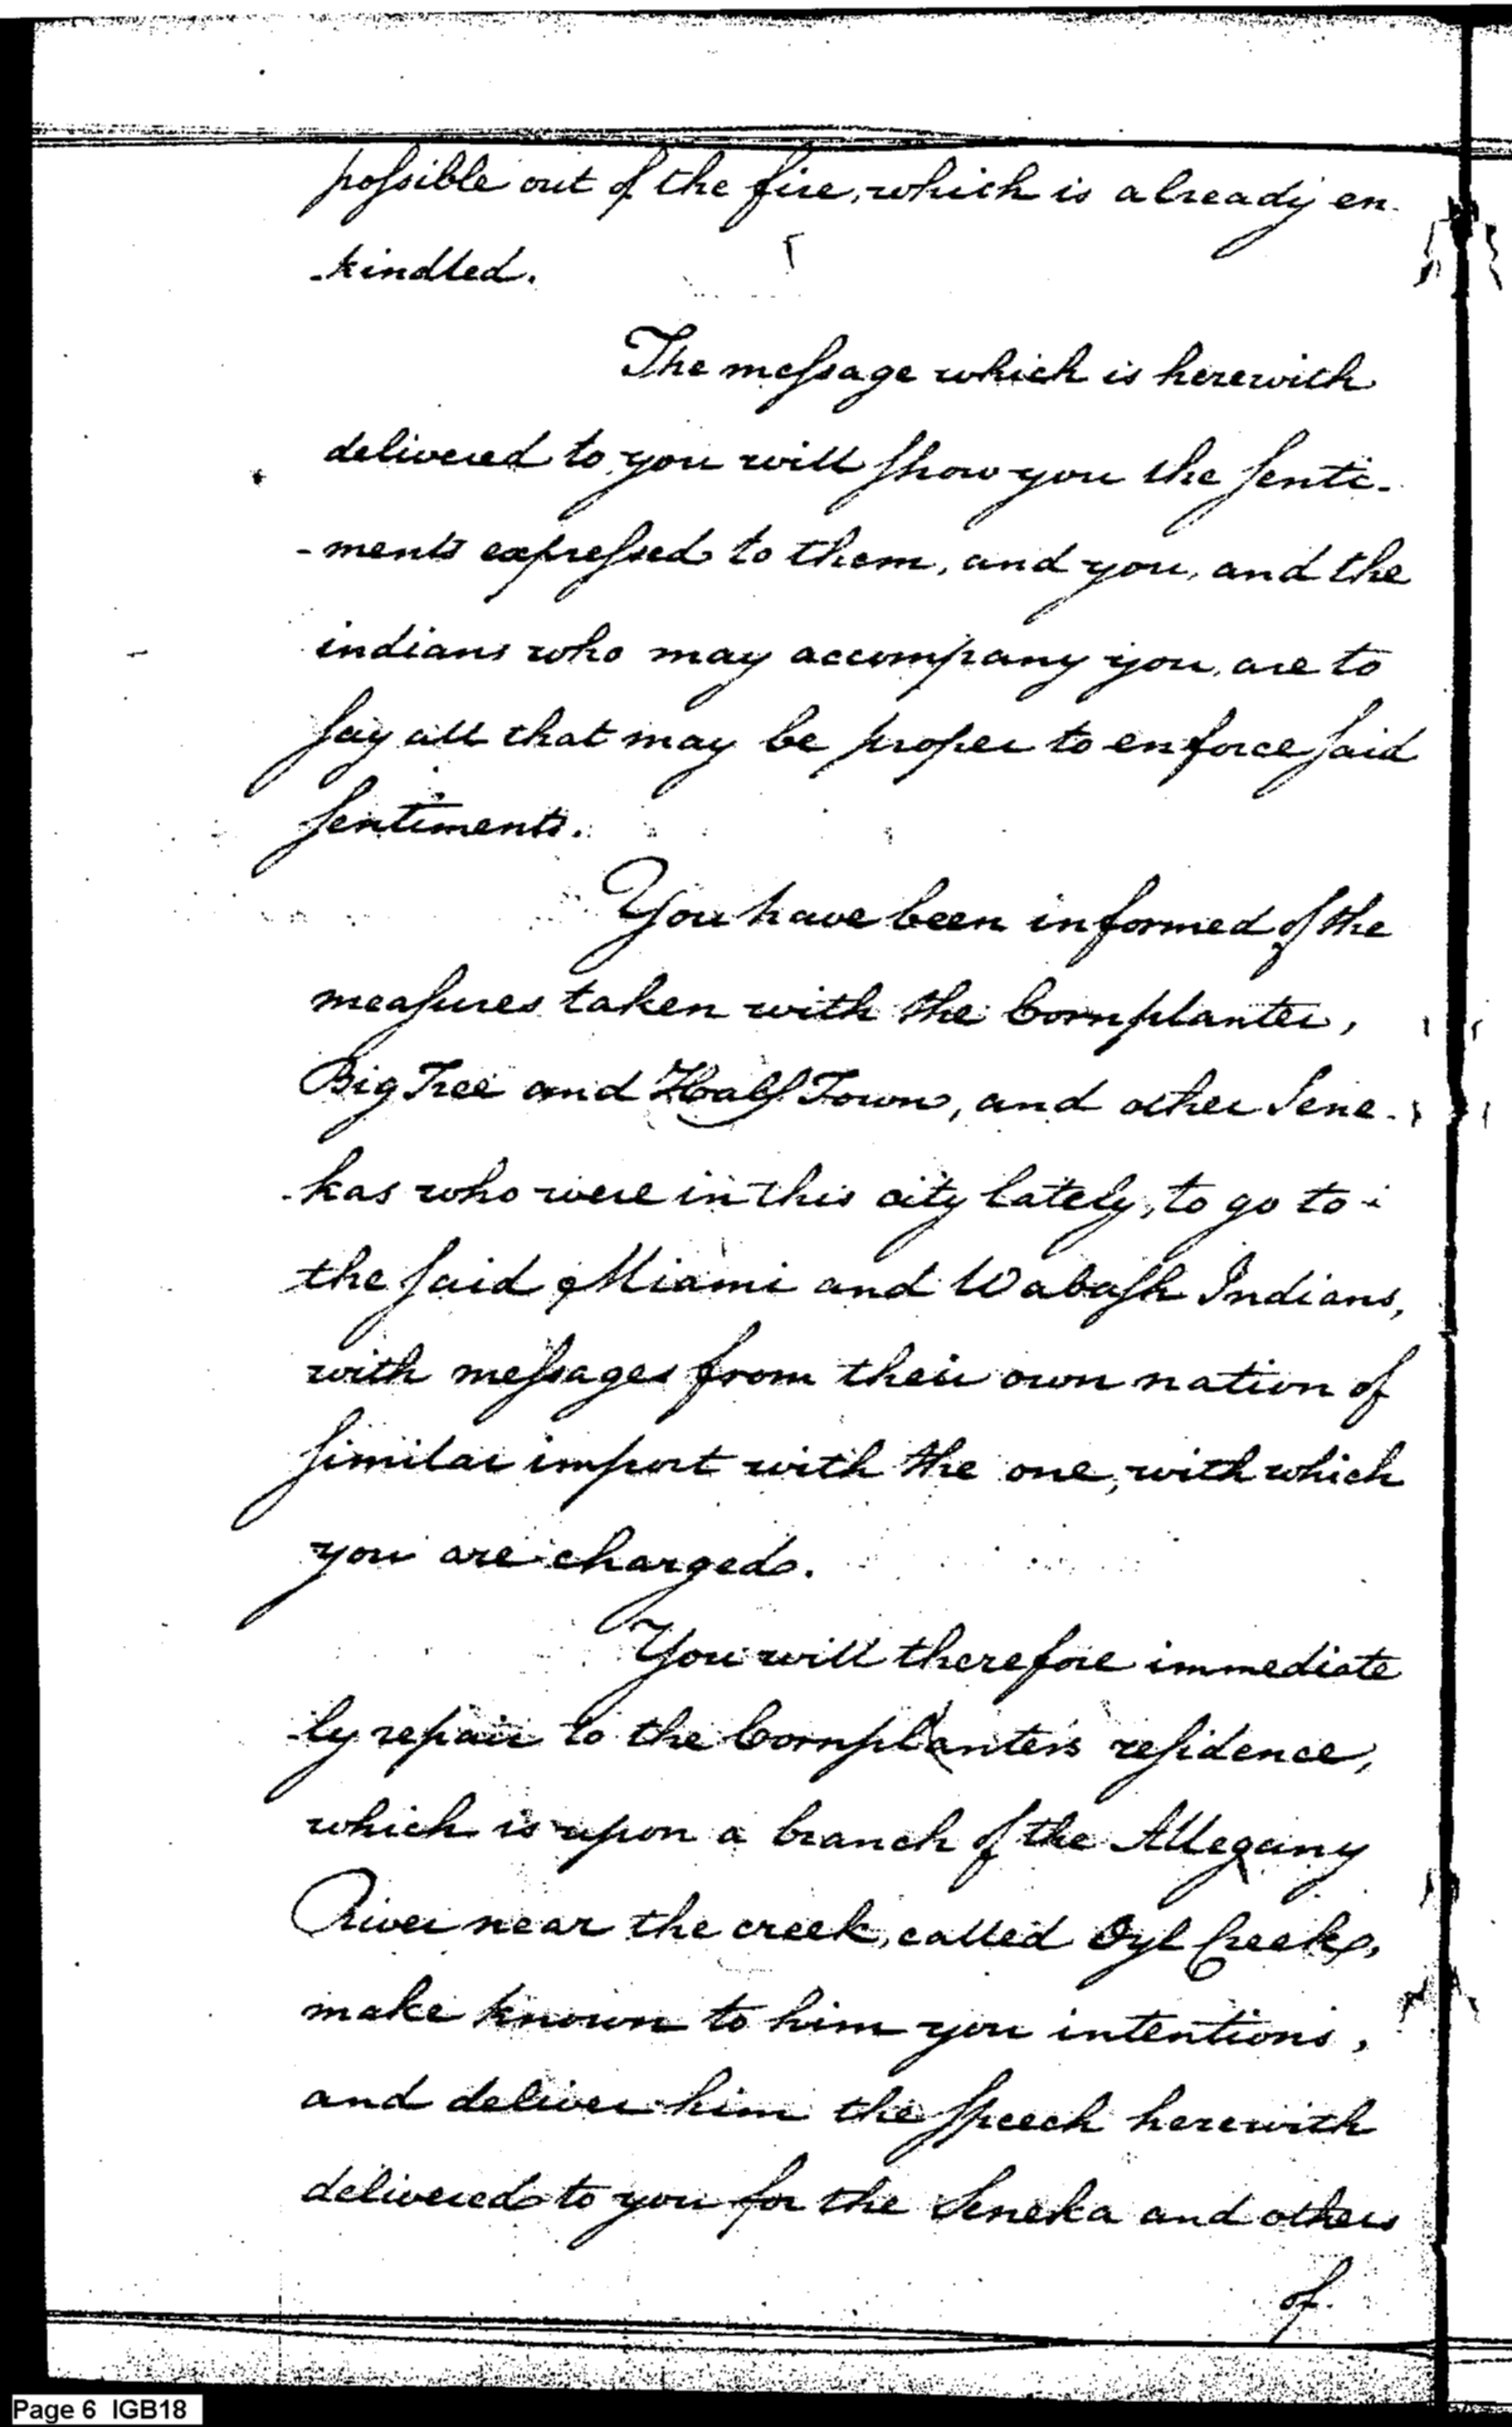 possible out of the fire, which is already en-
-kindled.
The message which is herewith
delivered to you will show you the senti-
-ments expressed to them, and you, and the
indians who may accompany you, are to
say all that may be proper to enforce said
sentiments.
You have been informed of the
measures taken with the Cornplanter,
Big Tree and Half Town, and other Sene-
-kas who were in this city lately, to go to
the said Miami and Wabash Indians,
with messages from their own nation of
similar import with the one, with which
you are charged.
You will therefore immediate
-ly repair to the Cornplanter's residence,
which is upon a branch of the Allegany
River near the creek, called Oyl Creek,
make known to him you intentions,
and deliver him the speech herewith
delivered to you for the Seneka and others
of
Page 6 IGB18